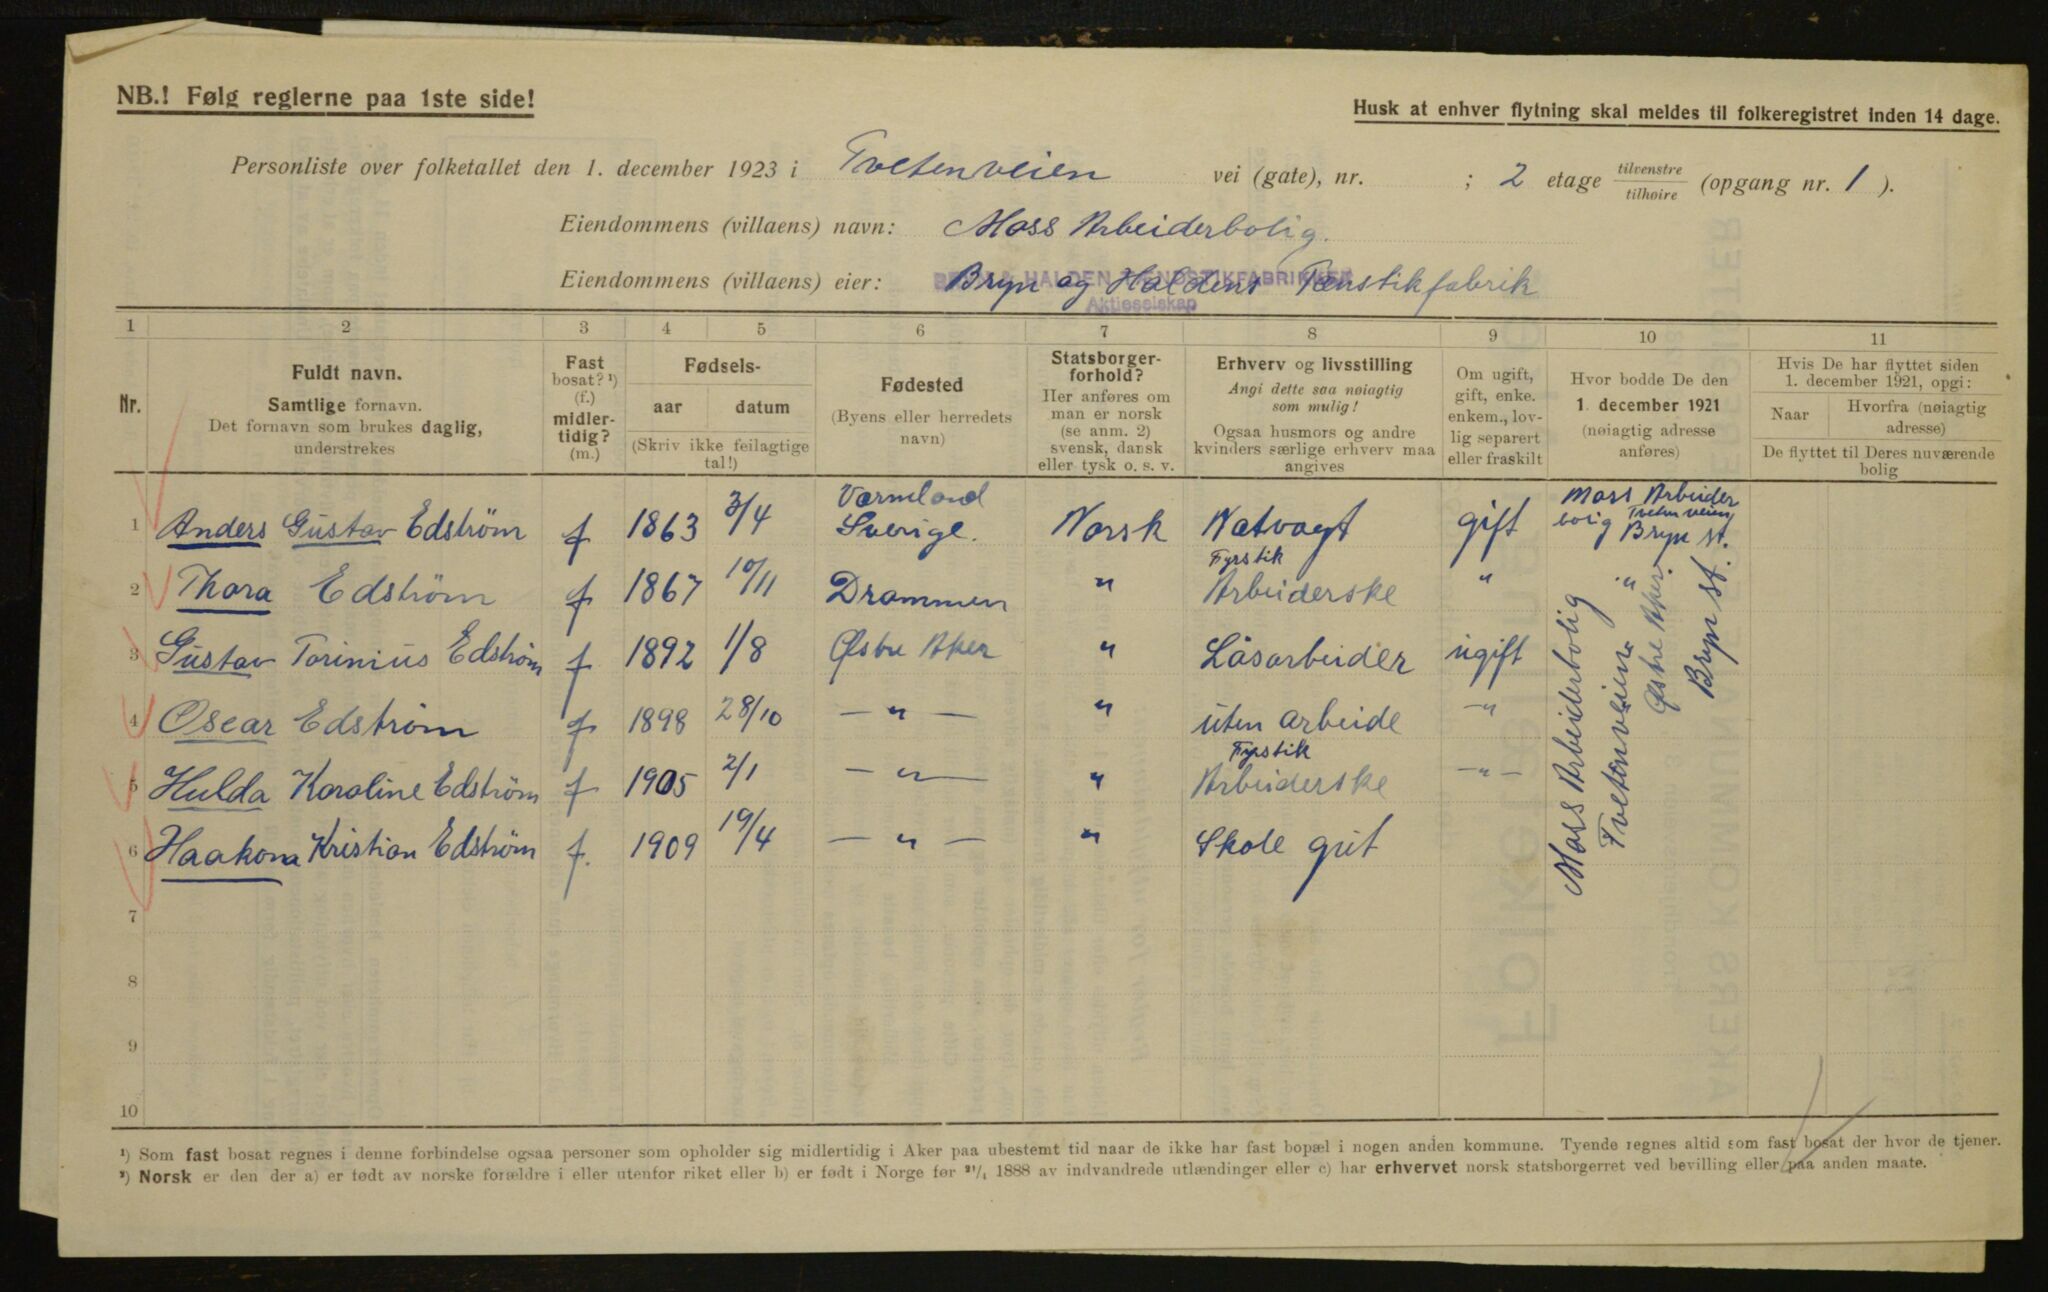 NB.! Følg reglerne paa 1ste side!
Husk at enhver flytning skal meldes til folkeregistret inden 14 dage.
Personliste over folketallet den 1. december 1923 i Tvetenveien vei (gate), nr. ; 2 etage tilvenstre tilhøire (opgang nr. 1 ).
Eiendommens (villaens) navn: Moss Arbeiderbolig.
Eiendommens (villaens) eier: Bryn og Haldens Tænstikfabrik
BRYN & HALDEN TÆNDSTIKFABRIKKER
Aktieselskap
1 2 3 4 5 6 7 8 9 10 11
Nr.
Fuldt navn.
Samtlige fornavn.
Det fornavn som brukes daglig,
understrekes
Fast
bosat? ¹)
(f.)
midler-
tidig?
(m.)
Fødsels-
aar datum
(Skriv ikke feilagtige
tal!)
Fødested
(Byens eller herredets
navn)
Statsborger-
forhold?
Her anføres om
man er norsk
(se anm. 2)
svensk, dansk
eller tysk o. s. v.
Erhverv og livsstilling
Angi dette saa nøiagtig
som mulig!
Ogsaa husmors og andre
kvinders særlige erhverv maa
angives
Om ugift,
gift, enke.
enkem., lov-
lig separert
eller fraskilt
Hvor bodde De den
1. december 1921
(nøiagtig adresse
anføres)
Hvis De har flyttet siden
1. december 1921, opgi:
Naar
Hvorfra (nøiagtig
adresse)
De flyttet til Deres nuværende
bolig
1 Anders Gustav Edström f 1863 3/4 Værmland Sverige. Norsk Natvagt gift Moss Arbeider bolig Tvetenveien Bryn st.
2 Thora Edström f 1867 10/11 Drammen " Fyrstik Arbeiderske " "
3 Gustav Torinius Edström f 1892 1/8 Østre Aker " Løsarbeider ugift
4 Oscar Edström f 1898 28/10 — " — " uten arbeide — "
5 Hulda Karoline Edström f 1905 2/1 — " — " Fyrstik Arbeiderske — " —
6 Haakon Kristian Edström f. 1909 19/4 — " — " Skole gut
Moss Arbeiderbolig
Tvetenveien
Østre Aker.
Bryn st.
7
8
9
10
¹) Som fast bosat regnes i denne forbindelse ogsaa personer som opholder sig midlertidig i Aker paa ubestemt tid naar de ikke har fast bopæl i nogen anden kommune. Tyende regnes altid som fast bosat der hvor de tjener.
²) Norsk er den der a) er født av norske forældre i eller utenfor riket eller b) er født i Norge før ²¹/₄ 1888 av indvandrede utlændinger eller c) har erhvervet norsk statsborgerret ved bevilling eller paa anden maate.